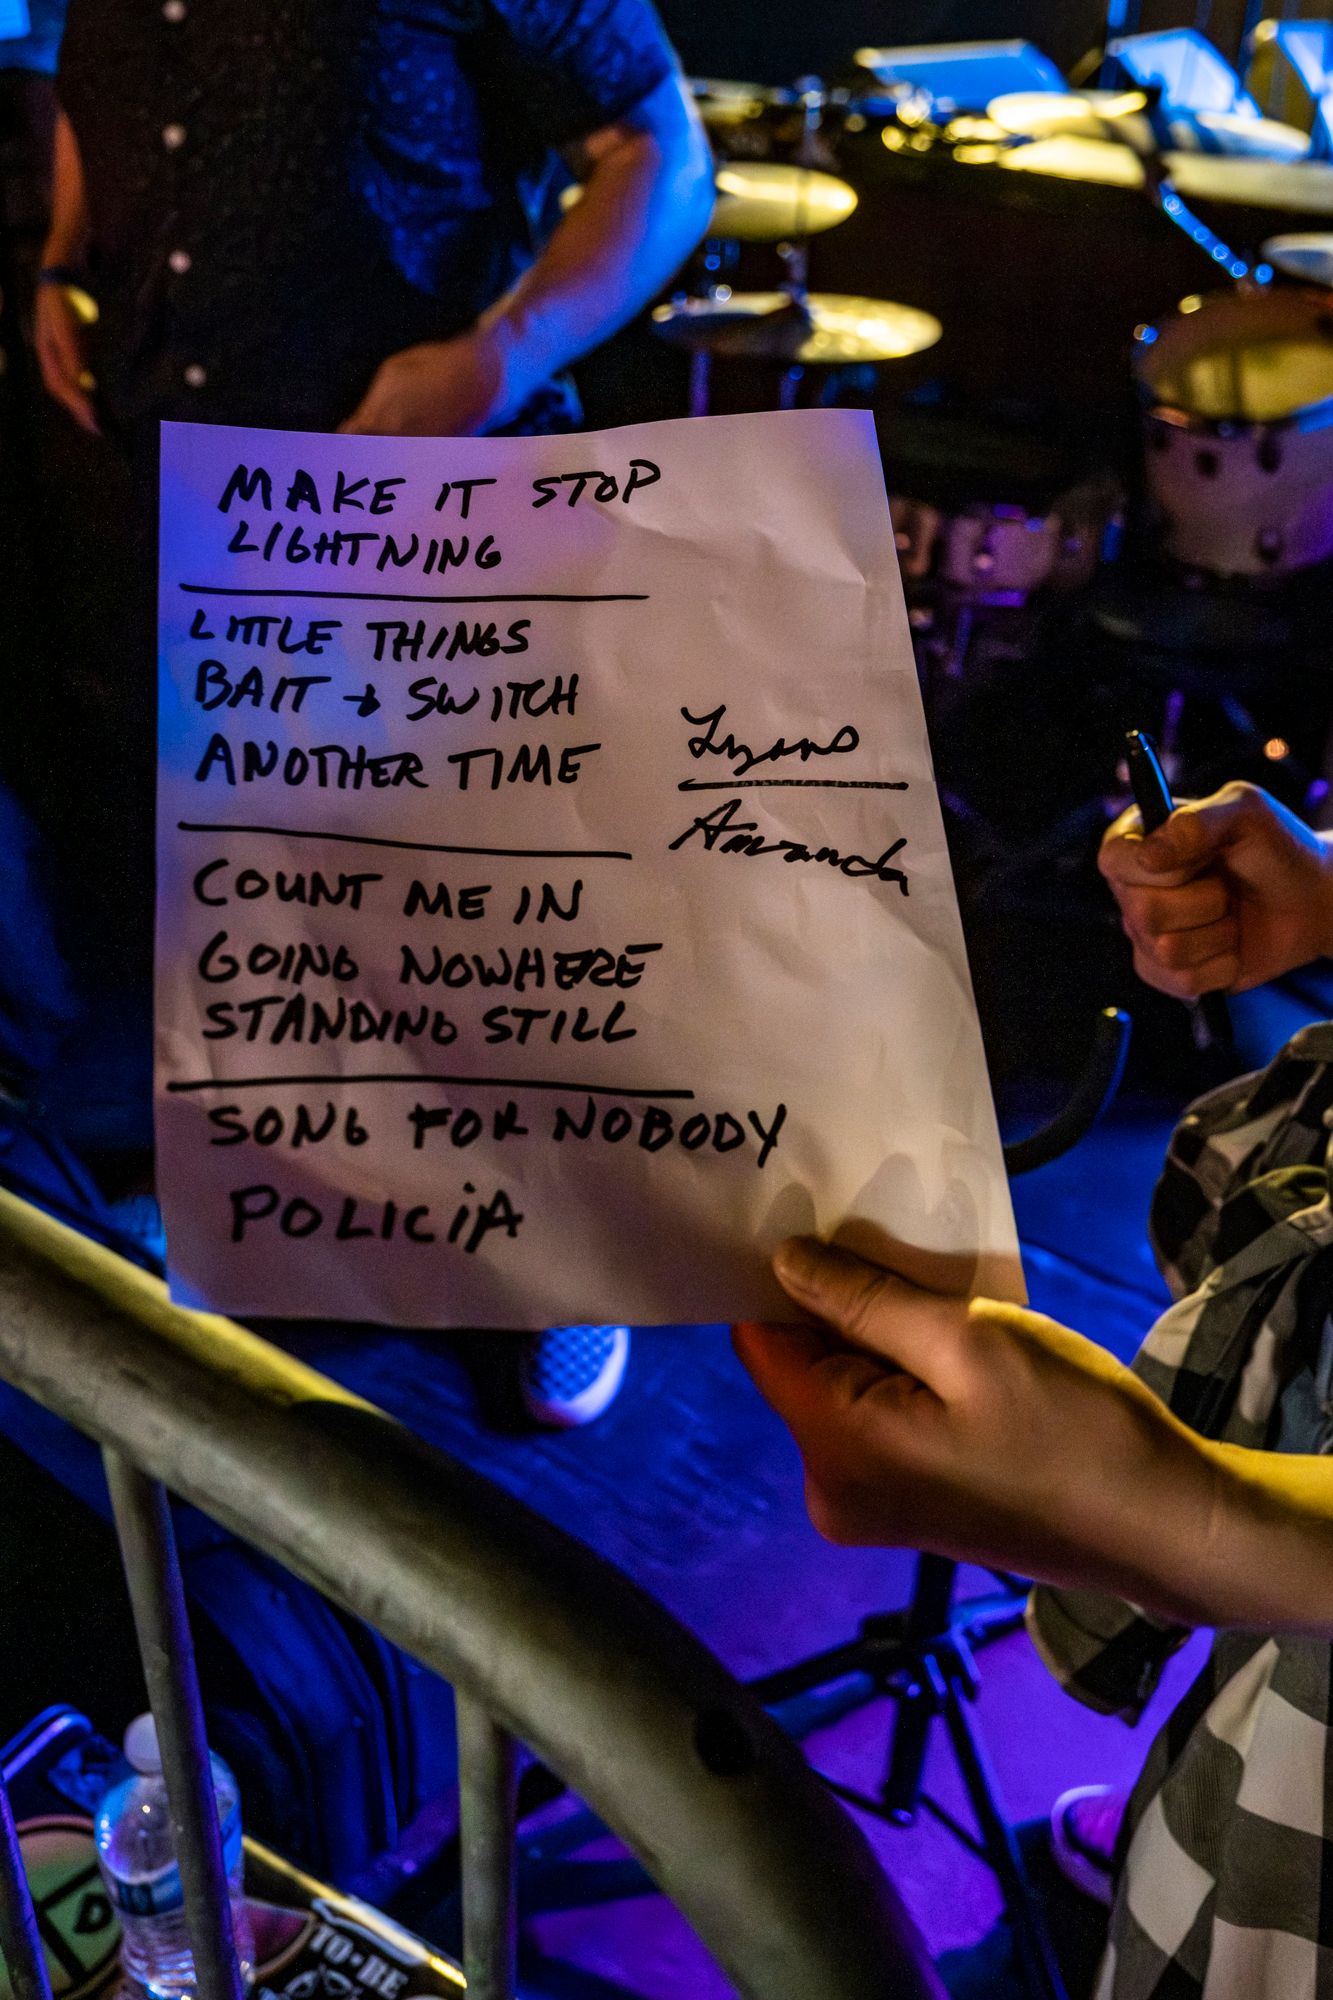 MAKE IT STOP
LIGHTNING
LITTLE THINGS
BAIT + SWITCH
ANOTHER TIME
Lyons
Amanda
COUNT ME IN
GOING NOWHERE
STANDING STILL
SONG FOR NOBODY
POLICIA
D
TO·BE